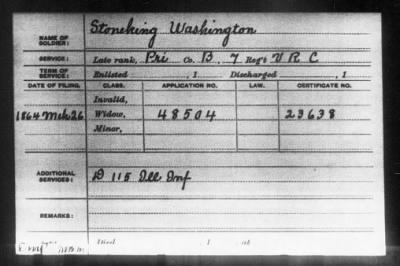 NAME OF SOLDIER: Stoneking Washington
SERVICE: Late rank, Pri Co. B, 7 Reg't V R C
TERM OF SERVICE: Enlisted , 1 Discharged , 1
DATE OF FILING. CLASS. APPLICATION NO. LAW. CERTIFICATE NO.
Invalid,
1864 Mch 26 Widow, 48504 23638
Minor,
ADDITIONAL SERVICES: D 115 Ill Inf
REMARKS:
Died 1 at